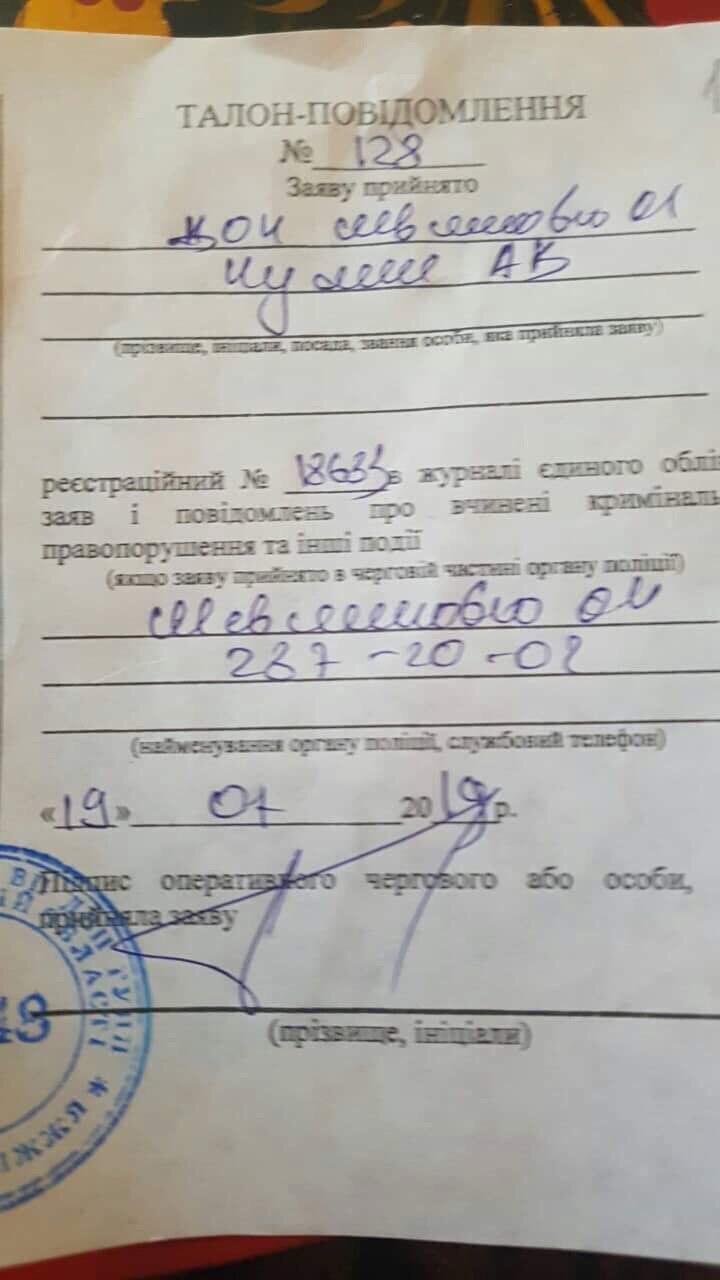 ТАЛОН-ПОВІДОМЛЕННЯ
№ 128
Заяву прийнято
АВ
(прізвище, ініціали, посада, звання особи, яка прийняла заяву)
реєстраційний № 18633 в журналі єдиного облі
заяв і повідомлень про вчинені криміналь
правопорушення та інші події
(якщо заяву прийнято в черговій частині органу поліції)
287-20-02
(найменування органу поліції, службовий телефон)
«19» 07 2019 р.
Підпис оперативного чергового або особи,
прийняла заяву
(прізвище, ініціали)